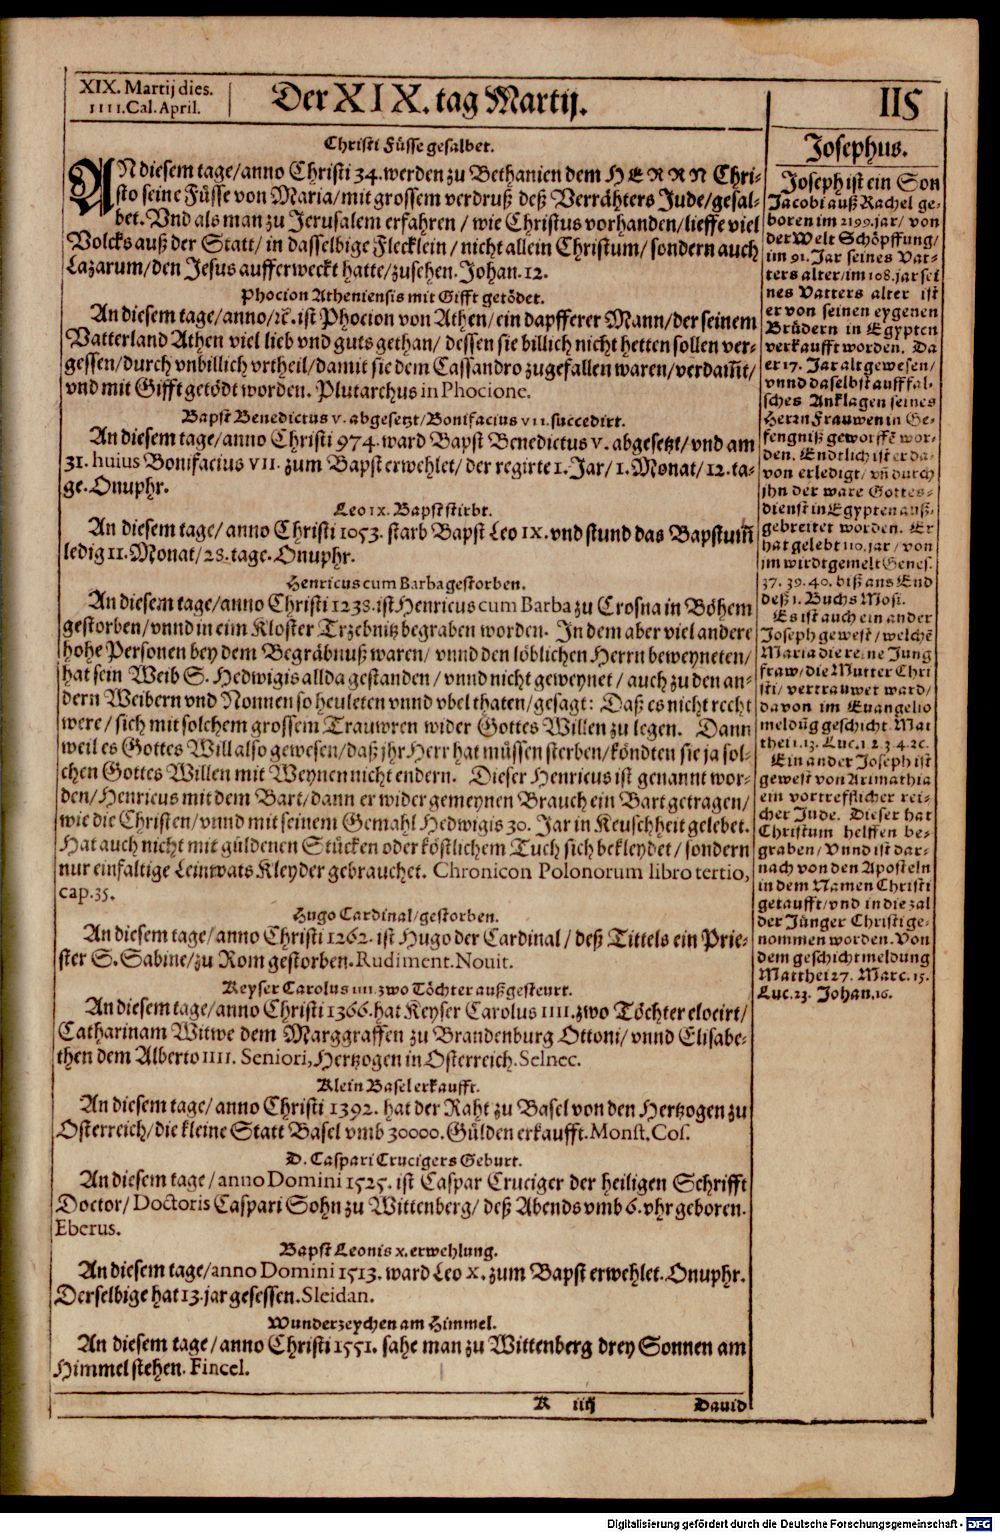 XIX. Martij dies.
IIII. Cal. April.
Der XIX. tag Martij.
115
Christi Füsse gesalbet.
AN diesem tage/ anno Christi 34. werden zu Bethanien dem HERRN Chri-
sto seine Füsse von Maria/ mit grossem verdruß deß Verrähters Jude/ gesal-
bet. Vnd als man zu Jerusalem erfahren / wie Christus vorhanden/ lieffe viel
Volcks auß der Statt/ in dasselbige Flecklein / nicht allein Christum/ sondern auch
Lazarum/ den Jesus aufferweckt hatte/ zusehen. Johan. 12.
Phocion Atheniensis mit Gifft getödet.
An diesem tage/ anno/ ꝛc. ist Phocion von Athen/ ein dapfferer Mann/ der seinem
Vatterland Athen viel lieb vnd guts gethan/ dessen sie billich nicht hetten sollen ver-
gessen/ durch vnbillich vrtheil/ damit sie dem Cassandro zugefallen waren/ verdam̃t/
vnd mit Gifft getödt worden. Plutarchus in Phocione.
Bapst Benedictus v. abgesetzt/ Bonifacius vii. succedirt.
An diesem tage/ anno Christi 974. ward Bapst Benedictus v. abgesetzt/ vnd am
31. huius Bonifacius VII. zum Bapst erwehlet/ der regirte 1. Jar/ 1. Monat/ 12. ta-
ge. Onuphr.
Leo ix. Bapst stirbt.
An diesem tage/ anno Christi 1053. starb Bapst Leo IX. vnd stund das Bapstum̃
ledig 11. Monat/ 28. tage. Onuphr.
Henricus cum Barba gestorben.
An diesem tage/ anno Christi 1238. ist Henricus cum Barba zu Crosna in Böhem
gestorben/ vnnd in eim Kloster Trzebnitz begraben worden. In dem aber viel andere
hohe Personen bey dem Begräbnuß waren/ vnnd den löblichen Herrn beweyneten/
hat sein Weib S. Hedwigis allda gestanden/ vnnd nicht geweynet / auch zu den an-
dern Weibern vnd Nonnen so heuleten vnnd vbel thaten/ gesagt: Daß es nicht recht
were/ sich mit solchem grossem Trauwren wider Gottes Willen zu legen. Dann
weil es Gottes Will also gewesen/ daß jhr Herr hat müssen sterben/ köndten sie ja sol-
chen Gottes Willen mit Weynen nicht endern. Dieser Henricus ist genannt wor-
den/ Henricus mit dem Bart/ dann er wider gemeynen Brauch ein Bart getragen/
wie die Christen/ vnnd mit seinem Gemahl Hedwigis 30. Jar in Keuschheit gelebet.
Hat auch nicht mit güldenen Stücken oder köstlichem Tuch sich bekleydet/ sondern
nur einfaltige Leinwats Kleyder gebrauchet. Chronicon Polonorum libro tertio,
cap. 35.
Hugo Cardinal/ gestorben.
An diesem tage/ anno Christi 1262. ist Hugo der Cardinal/ deß Tittels ein Prie-
ster S. Sabine/ zu Rom gestorben. Rudiment. Nouit.
Keyser Carolus iiii. zwo Töchter außgesteurt.
An diesem tage/ anno Christi 1366. hat Keyser Carolus IIII. zwo Töchter elocirt/
Catharinam Witwe dem Marggraffen zu Brandenburg Ottoni/ vnnd Elisabe-
then dem Alberto IIII. Seniori, Hertzogen in Osterreich. Selnec.
Klein Basel erkaufft.
An diesem tage/ anno Christi 1392. hat der Raht zu Basel von den Hertzogen zu
Osterreich/ die kleine Statt Basel vmb 30000. Gülden erkaufft. Monst. Cos.
D. Caspari Crucigers Geburt.
An diesem tage/ anno Domini 1525. ist Caspar Cruciger der heiligen Schrifft
Doctor/ Doctoris Caspari Sohn zu Wittenberg/ deß Abends vmb 6. vhr geboren.
Eberus.
Bapst Leonis x. erwehlung.
An diesem tage/ anno Domini 1513. ward Leo X. zum Bapst erwehlet. Onuphr.
Derselbige hat 13. jar gesessen. Sleidan.
Wunderzeychen am Himmel.
An diesem tage/ anno Christi 1551. sahe man zu Wittenberg drey Sonnen am
Himmel stehen. Fincel.
K iiij
David
Josephus.
Joseph ist ein Son
Jacobi auß Rachel ge-
boren im 2199. jar/ von
der Welt Schöpffung/
im 91. Jar seines Vat-
ters alter/ im 108. jar sei
nes Vatters alter ist
er von seinen eygenen
Brüdern in Egypten
verkaufft worden. Da
er 17. Jar alt gewesen/
vnnd daselbst auff fal-
sches Anklagen seines
Herrn Frauwen in Ge-
fengniß geworffẽ wor-
den. Endtlich ist er da-
von erledigt/ vñ durch
jhn der ware Gottes-
dienst in Egypten auß-
gebreitet worden. Er
hat gelebt 110. jar/ von
jm wirdt gemelt Genes.
37. 39. 40. biß ans End
deß 1. Buchs Mosi.
Es ist auch ein ander
Joseph gewest/ welchẽ
Maria die reine Jung
fraw/ die Mutter Chri
sti/ vertrauwet ward/
davon im Euangelio
meldũg geschicht. Mat
thei 1. 13. Luc. 1. 2. 3. 4. ꝛc.
Ein ander Joseph ist
gewest von Arimathia
ein vortrefflicher rei-
cher Jude. Dieser hat
Christum helffen be-
graben/ Vnnd ist dar-
nach von den Aposteln
in dem Namen Christi
getaufft/ vnd in die zal
der Jünger Christi ge-
nommen worden. Von
dem geschicht meldung
Matthei 27. Marc. 15.
Luc. 23. Johan. 16.
Digitalisierung gefördert durch die Deutsche Forschungsgemeinschaft - DFG